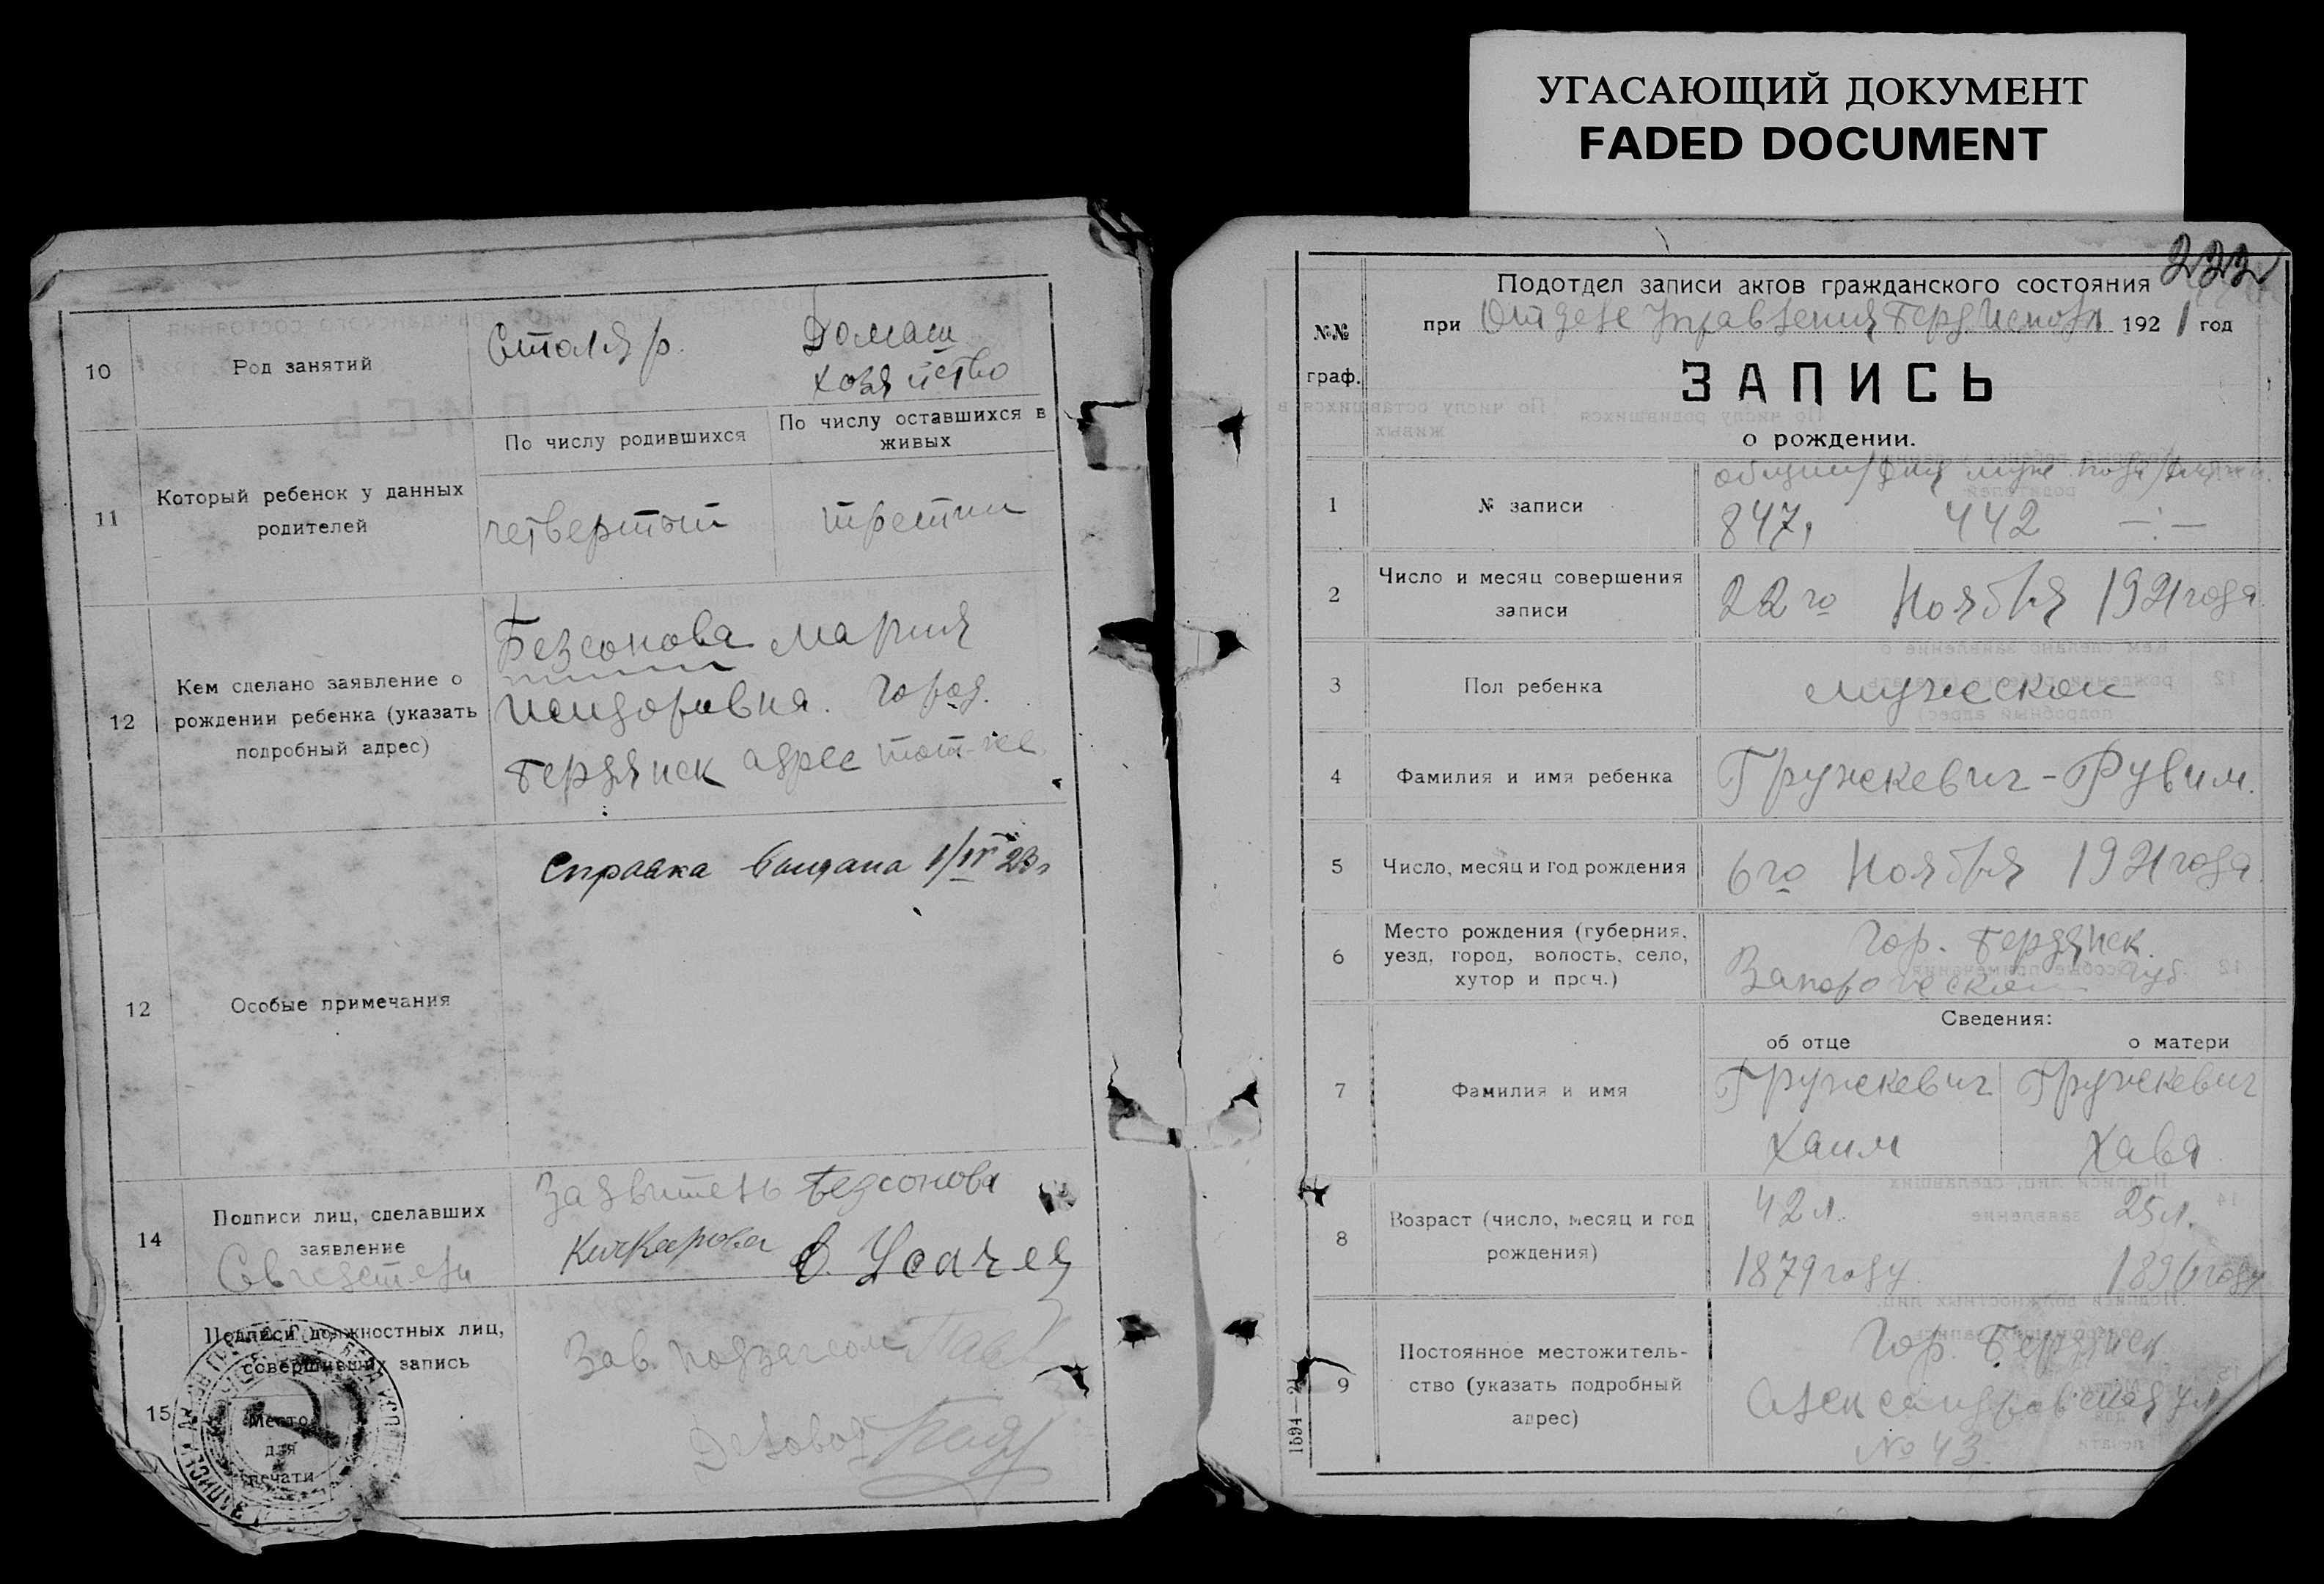 УГАСАЮЩИЙ ДОКУМЕНТ
FADED DOCUMENT
10
Род занятий
Столяр.
Домаш
хозяйство
11
Который ребенок у данных
родителей
По числу родившихся
По числу оставшихся в
живых
четвертый
третий
12
Кем сделано заявление о
рождении ребенка (указать
подробный адрес)
Безсонова Мария
Исидоровна. город.
Бердянск адрес тот-же
12
Особые примечания
Справка выдана 1/IV 23 г
14
Подписи лиц, сделавших
заявление
Свидетели
Заявитель Безсонова
О. Усачев
15
Подписи должностных лиц,
совершивших запись
Место
для
печати
Зав. подзагсом
Деловод
222
№№
граф.
Подотдел записи актов гражданского состояния
при Отделе Управления Берд. Исполк 1921 год
ЗАПИСЬ
о рождении.
1
№ записи
общий/для муж пола/
847, 442 —:—
2
Число и месяц совершения
записи
22го Ноября 1921 года.
3
Пол ребенка
мужской
4
Фамилия и имя ребенка
Гружкевич - Рувим.
5
Число, месяц и год рождения
6го Ноября 1921 года.
6
Место рождения (губерния,
уезд, город, волость, село,
хутор и проч.)
Гор. Бердянск.
Запорожской губ.
Сведения:
об отце
о матери
7
Фамилия и имя
Гружкевич
Хаим
Гружкевич
Хава
8
Возраст (число, месяц и год
рождения)
42 л.
1879 году
25 л.
1896 году
9
Постоянное местожитель-
ство (указать подробный
адрес)
Гор. Бердянск
Александровская ул
№ 43.
1594—21